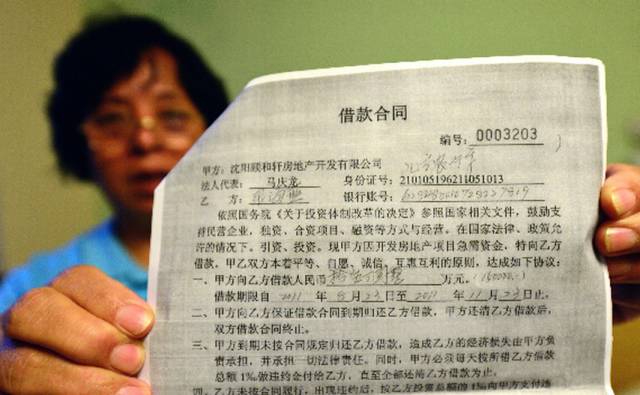 借款合同
编号：0003203
甲方：沈阳颐和轩房地产开发有限公司
法人代表：马庆龙 身份证号：210105196211051013
乙 方： 银行账号：
依照国务院《关于投资体制改革的决定》参照国家相关文件，鼓励支
持民营企业，独资、合资项目，融资等方式与经营。在国家法律、政策允
许的情况下。引资、投资。现甲方因开发房地产项目急需资金，特向乙方
借款，甲乙双方本着平等、自愿、诚信、互惠互利的原则，达成如下协议：
一、甲方向乙方借款人民币 万元。
借款期限自 2011 年 8 月 23 日至 2011 年 11 月 23 日止。
二、甲方向乙方保证借款合同到期归还乙方借款，甲方还清乙方借款后，
双方借款合同终止。
三、甲方到期未按合同规定归还乙方借款，造成乙方的经济损失由甲方负
责承担，并承担一切法律责任。同时，甲方必须每天按所借乙方借款
总额1%做违约金付给乙方，直至全部还清乙方借款为止。
四、乙方未按合同履行，出现违约后，按乙方投资总额的1%向甲方支付违